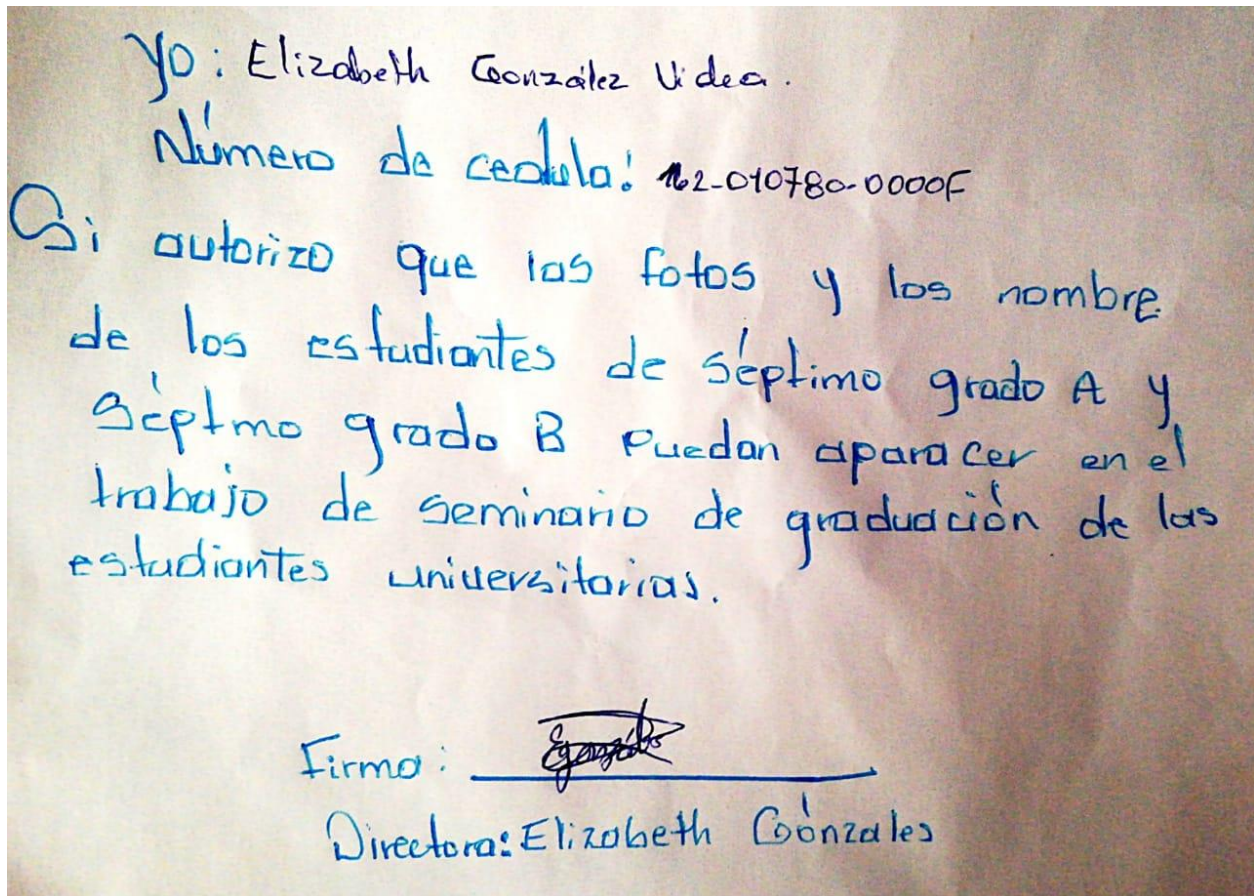 Yo: Elizabeth González Videa.
Número de cedula: 162-010780-0000F
Si autorizo que las fotos y los nombre
de los estudiantes de séptimo grado A y
séptmo grado B Puedan aparacer en el
trabajo de seminario de graduación de las
estudiantes universitarias.
Firma:
Directora: Elizabeth Goónzales